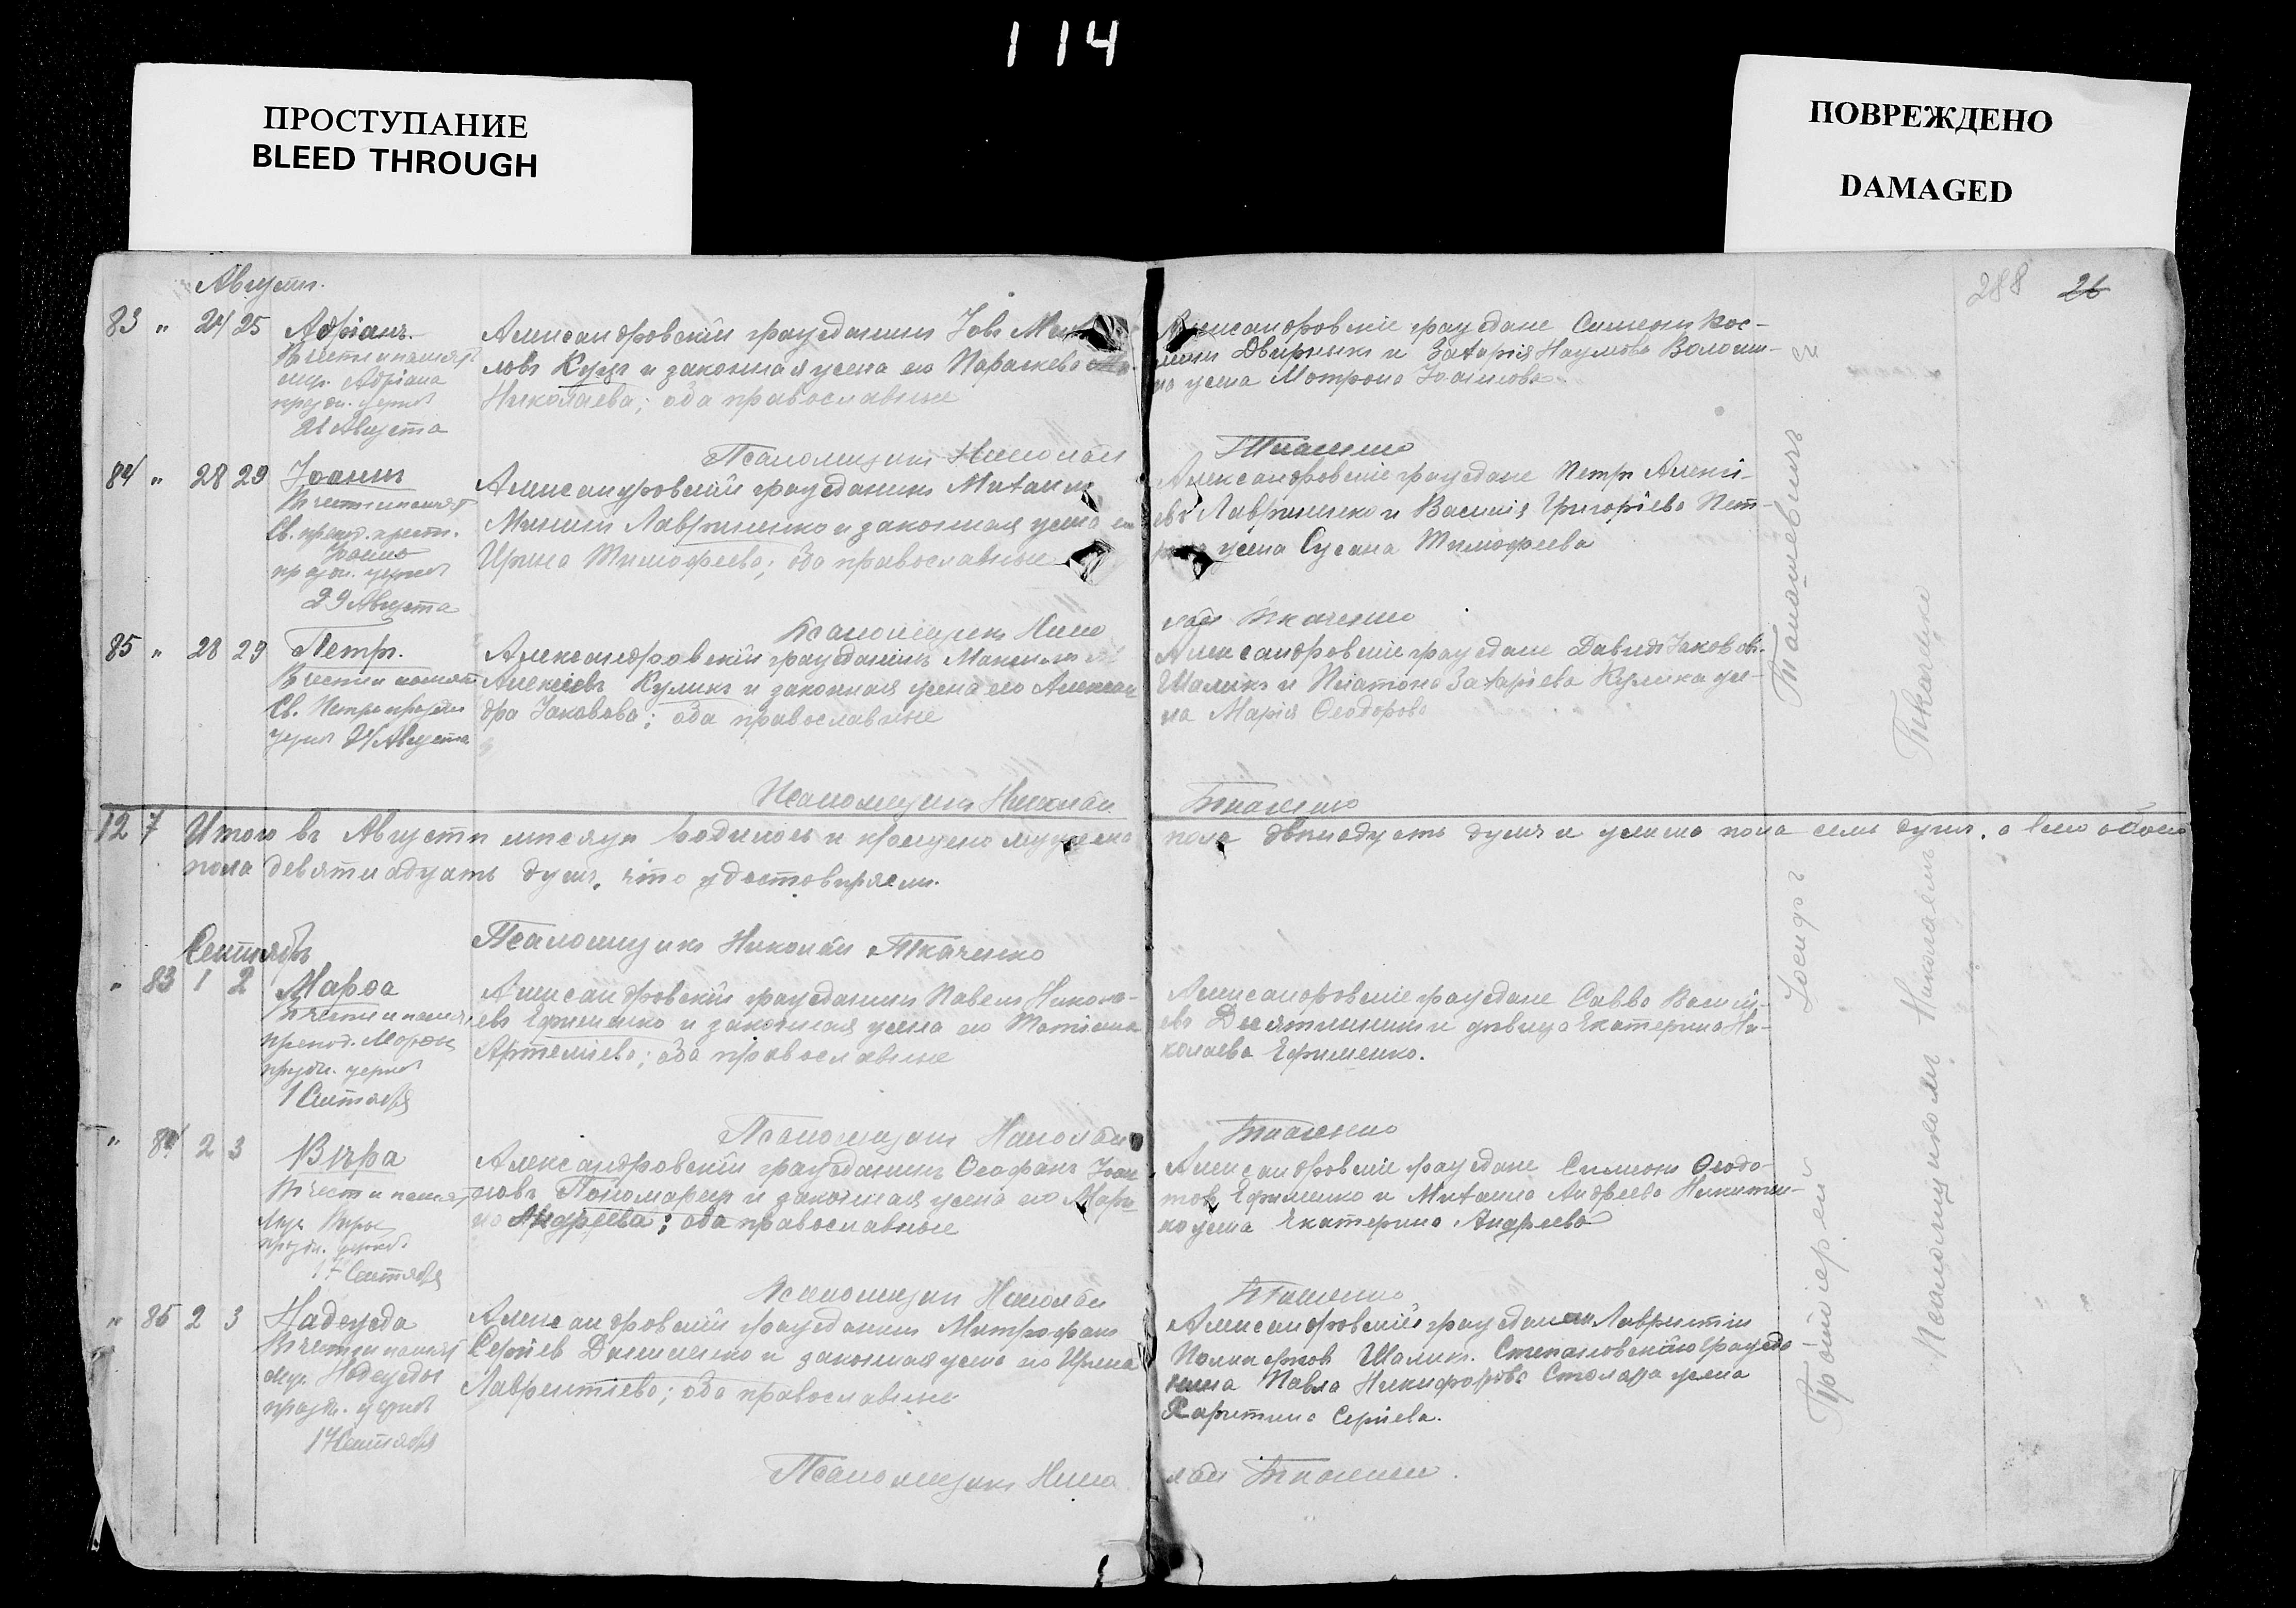 114
ПРОСТУПАНИЕ
BLEED THROUGH
ПОВРЕЖДЕНО
DAMAGED
288 26
Августъ.
83 " 24 25 Адріанъ.
В честь и память
муч. Адріана
праздн. церков
21 Августа
Александровскій гражданинъ Іовъ
ловъ Куцъ и законная жена его Параскева
Николаева; оба православные
Александровскіе граждане Симеонъ Кос-
минъ Дворныкъ и Захарія Наумова Волоши-
на жена Матрона Іоакимова
Псаломщикъ Николай Ткаченко
84 " 28 29 Іоаннъ
В честь и память
Св. прор. крест.
Іоанна
праздн. церков
29 Августа
Александровскій гражданинъ Михаилъ
Мининъ Лавриненко и законная жена его
Ирина Тимофеева; оба православные
Александровскіе граждане Петръ Алексі-
евъ Лавриненко и Василія Григоріева Пет-
жена Сусана Тимофеева
Псаломщикъ Николай Ткаченко
85 " 28 29 Петръ.
В честь и память
Св. Петра праздн
церков 24 Августа
Александровскій гражданинъ Максимъ
Алексіевъ Куликъ и законная жена его Алексан
дра Іаковова; оба православные
Александровскіе граждане Давидъ Іакововъ
Шаликъ и Платона Захаріева Кулика же-
на Марія Ѳеодорова
Псаломщикъ Николай Ткаченко
12 7 Итого въ Августѣ мѣсяцѣ родилось и крещено мужеска пола двѣнадцать душъ и женска пола семь душъ, а всего обоего
пола девятнадцать душъ, что удостовѣряемъ.
Псаломщикъ Николай Ткаченко
Сентябрь
" 83 1 2 Марѳа
В честь и память
препод. Марѳы
праздн. церков
1 Сентября
Александровскій гражданинъ Павелъ Никола-
евъ Ефименко и законная жена его Татіана
Артеміева; оба православные
Александровскіе граждане Савва Василі-
евъ Десятникъ и дѣвица Екатерина Ни-
колаева Ефименко.
Псаломщикъ Николай Ткаченко
" 84 2 3 Вѣра
В честь и память
муч. Вѣры
праздн. церков
17 Сентября
Александровскій гражданинъ Ѳеофанъ Іоан
новъ Пономарец и законная жена его Мари
на Андреева; оба православные
Александровскіе граждане Симеонъ Ѳеодо-
товъ Ефименко и Михаила Андреева Никитен-
ко жена Екатерина Андреева
Псаломщикъ Николай Ткаченко
" 85 2 3 Надежда
В честь и память
муч. Надежды
праздн. церков
17 Сентября
Александровскій гражданинъ Митрофанъ
Сергіев и законная жена его Ирина
Лаврентіева; оба православные
Александровскій гражданинъ Лаврентій
Поликарпов Шаликъ. Степановскаго гражда
нина Павла Никифорова Столяра жена
Харитина Сергіева.
Псаломщикъ Николай Ткаченко.
Протоіерей Іосифъ
Псаломщикомъ Николаемъ Ткаченко